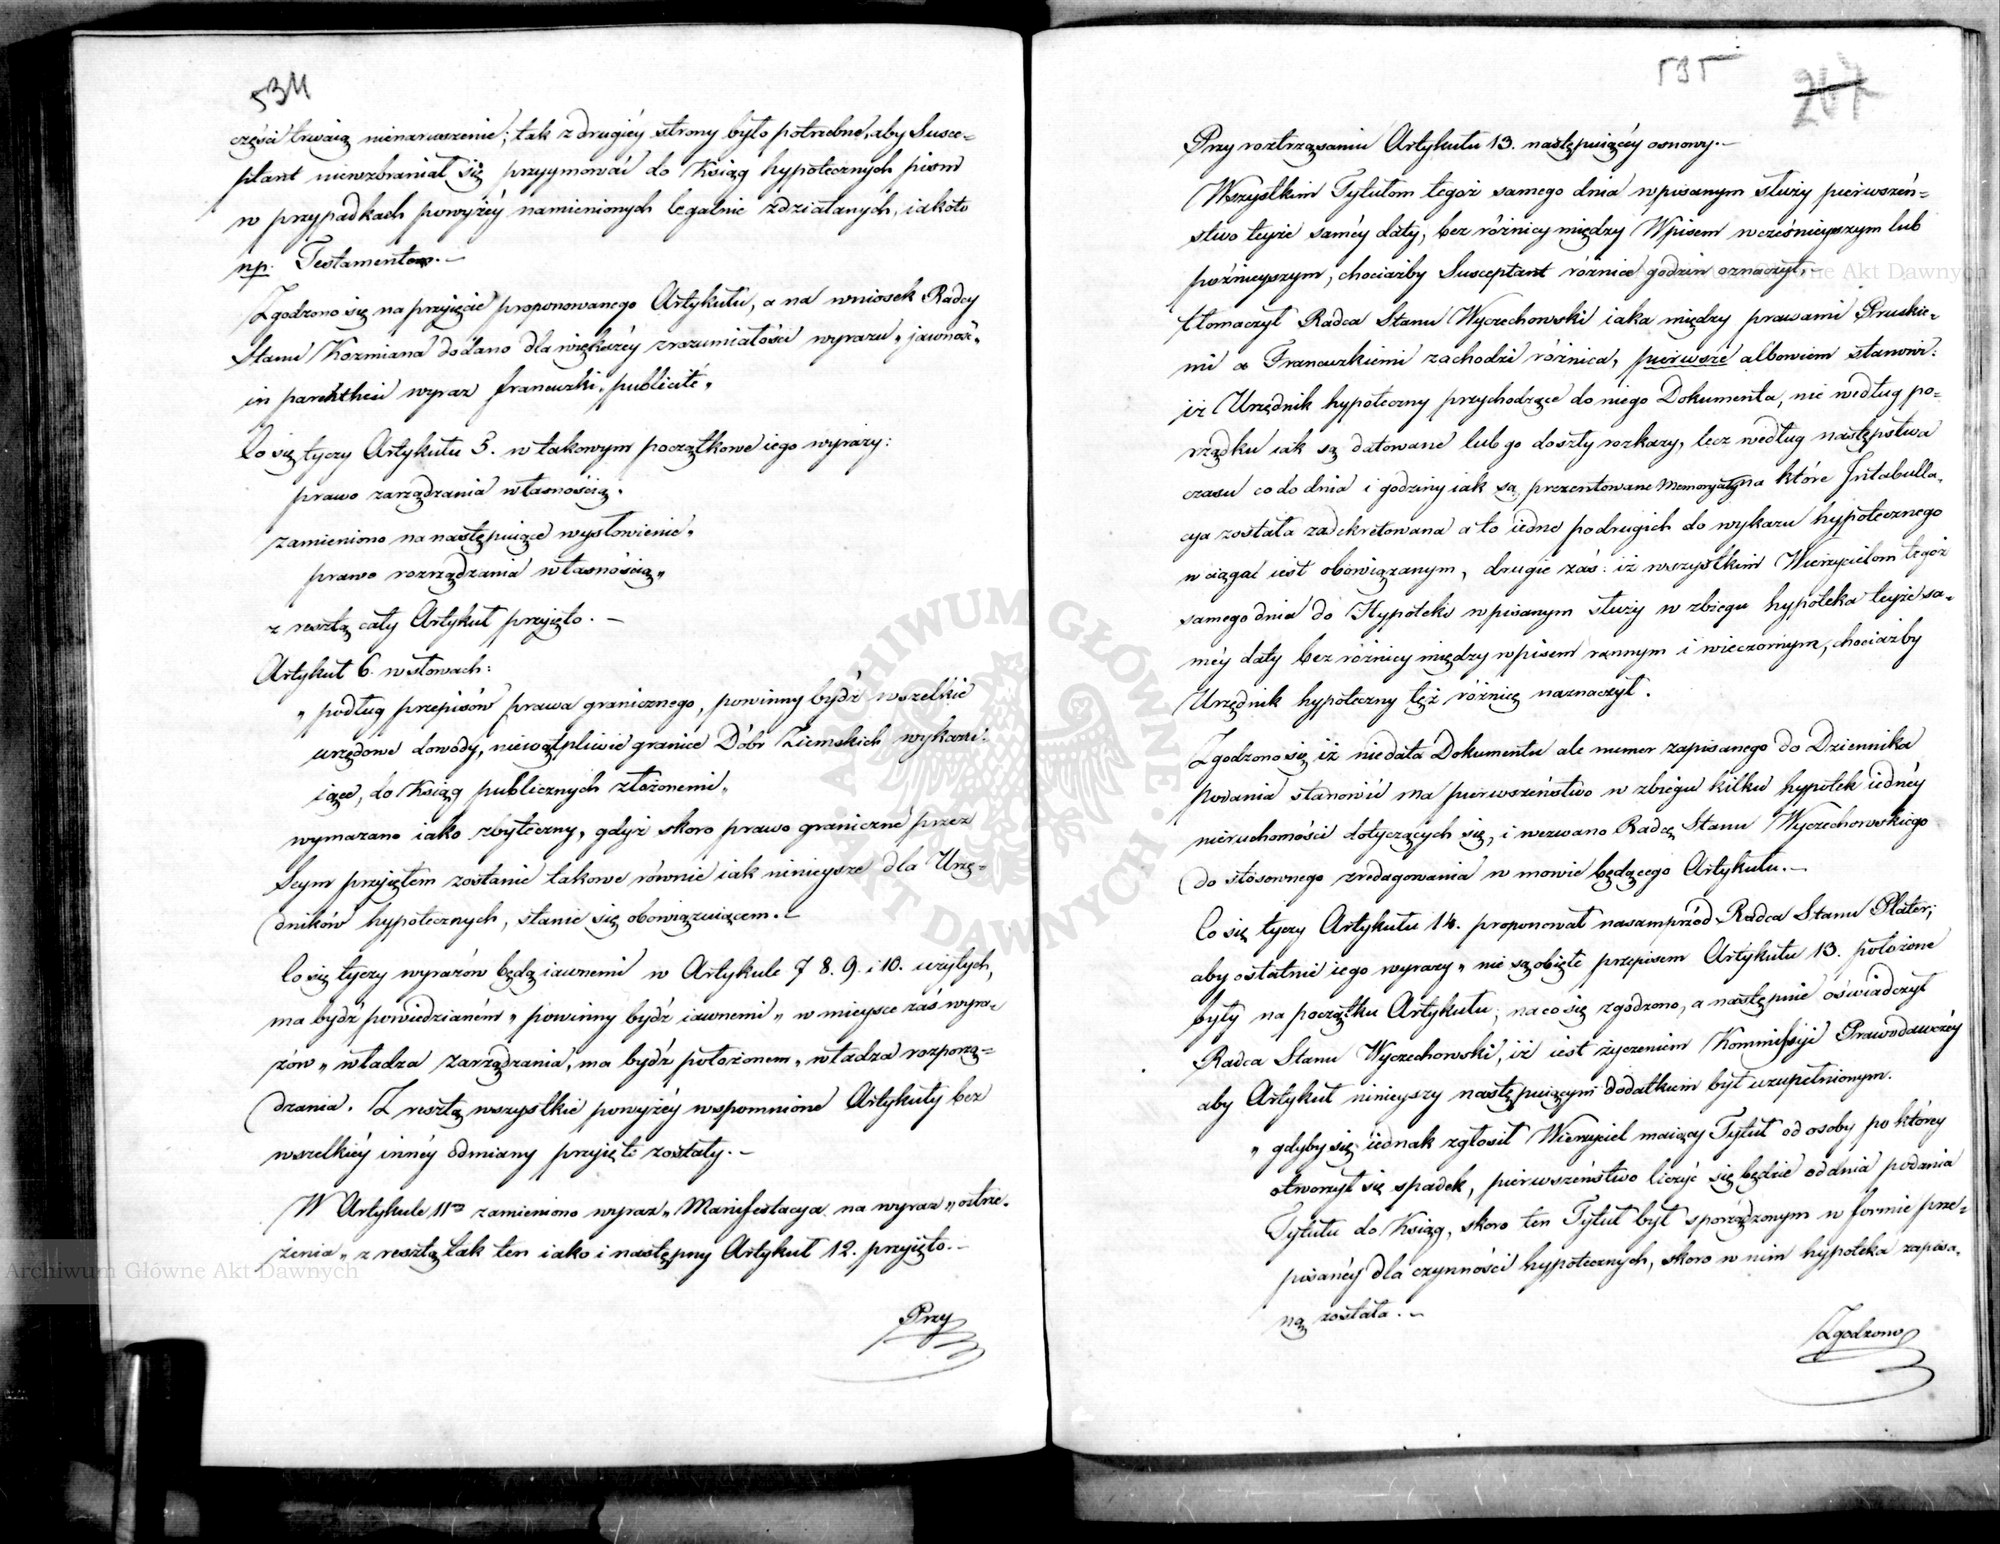 534
części trwaią nienaruszenie; tak z drugiéy strony było potrzebne, aby Susce-
ptant niewzbraniał się przyymować do Ksiąg hypotecznych pism
w przypadkach powyżéy namienionych legalnie zdziałanych, iakoto
np. Testamentow.—
Zgodzono się na przyięcie proponowanego Artykułu, a na wniosek Radcy
Stanu Kozmiana dodano dla większéy zrozumiałości wyrazu „jawność„
in parenthesi wyraz francuzki „publicité„
Co się tyczy Artykułu 5. w takowym początkowe iego wyrazy:
prawo zarządzania własnością.
zamieniono na następuiące wysłowienie„
prawo rozrządzania własnością„
z resztą cały Artykuł przyięto.—
Artykuł 6. w słowach:
„podług przepisów prawa granicznego, powinny bydź wszelkie
urzędowe dowody, niewątpliwie granice Dóbr Ziemskich wykazu-
iące, do Ksiąg publicznych złożonemi„
wymazano iako zbyteczny, gdyż skoro prawo graniczne przez
Seym przyiętem zostanie takowe równie iak ninieysze dla Urzę-
dników hypotecznych, stanie się obowiązuiącem.—
Co się tyczy wyrazów będą iawnemi w Artykule 7 8. 9. i 10. użytych,
ma bydź powiedzianém „powinny bydź iawnemi„ w mieysce zaś wyra-
zów „władza zarządzania, ma bydź położonem „władza rozporzą-
dzania. Z resztą wszystkie powyżéy wspomnione Artykuły bez
wszelkiéy innéy odmiany przyięte zostały.—
W Artykule 11m zamieniono wyraz „Manifestacya na wyraz „ostrze-
żenia„ z resztą tak ten iako i następny Artykuł 12. przyięto.—
Przy
535
207
Przy roztrząsaniu Artykułu 13. następuiącéy osnowy.—
Wszystkim Tytułom tegoż samego dnia wpisanym służy pierwszeń-
stwo teyże saméy daty, bez różnicy między Wpisem wcześnieyszym lub
poźnieyszym, chociażby Susceptant różnice godzin oznaczył,—
tłomaczył Radca Stanu Wyczechowski iaka między prawami Pruskie-
mi a Francuzkiemi zachodzi różnica, pierwsze albowiem stanowi:
iż Urzędnik hypoteczny przychodzące do niego Dokumenta, nie według po-
rządku iak są datowane lub go doszły rozkazy, lecz według następstwa
czasu co do dnia i godziny iak są prezentowane Memoryały na które Intabulla-
cya została zadekretowana a to iedne po drugich do wykazu hypotecznego
wciągać iest obowiązanym, drugie zaś: iż wszystkim Wierzycielom tegoż
samego dnia do Hypoteki wpisanym służy w zbiegu hypoteka teyże sa-
méy daty bez różnicy między wpisem rannym i wieczornym, chociażby
Urzędnik hypoteczny też różnicę naznaczył.
Zgodzono się iż nie data Dokumentu ale numer zapisanego do Dziennika
podania stanowić ma pierwszeństwo w zbiegu kilku hypotek iednéy
nieruchomości dotyczących się, i wezwano Radcę Stanu Wyczechowskiego
do stósownego zredagowania w mowie będącego Artykułu.—
Co się tyczy Artykułu 14. proponował nasamprzód Radca Stanu Plater;
aby ostatnie iego wyrazy „nie są obięte przepisem Artykułu 13. położone
były na początku Artykułu; na co się zgodzono, a następnie oświadczył
Radca Stanu Wyczechowski, iż iest życzeniem Kommissyi Prawodawczéy
aby Artykuł ninieyszy następuiącym dodatkiem był uzupełnionym.
„gdyby się iednak zgłosił Wierzyciel maiący Tytuł od osoby po któréy
otworzył się spadek, pierwszeństwo liczyć się będzie od dnia podania
Tytułu do Ksiąg, skoro ten Tytuł był sporządzonym w formie prze-
pisanéy dla czynności hypotecznych, skoro w nim hypoteka zapisa-
ną została.—
Zgodzono
ARCHIWUM GŁÓWNE AKT DAWNYCH
Archiwum Główne Akt Dawnych
Główne Akt Dawnych